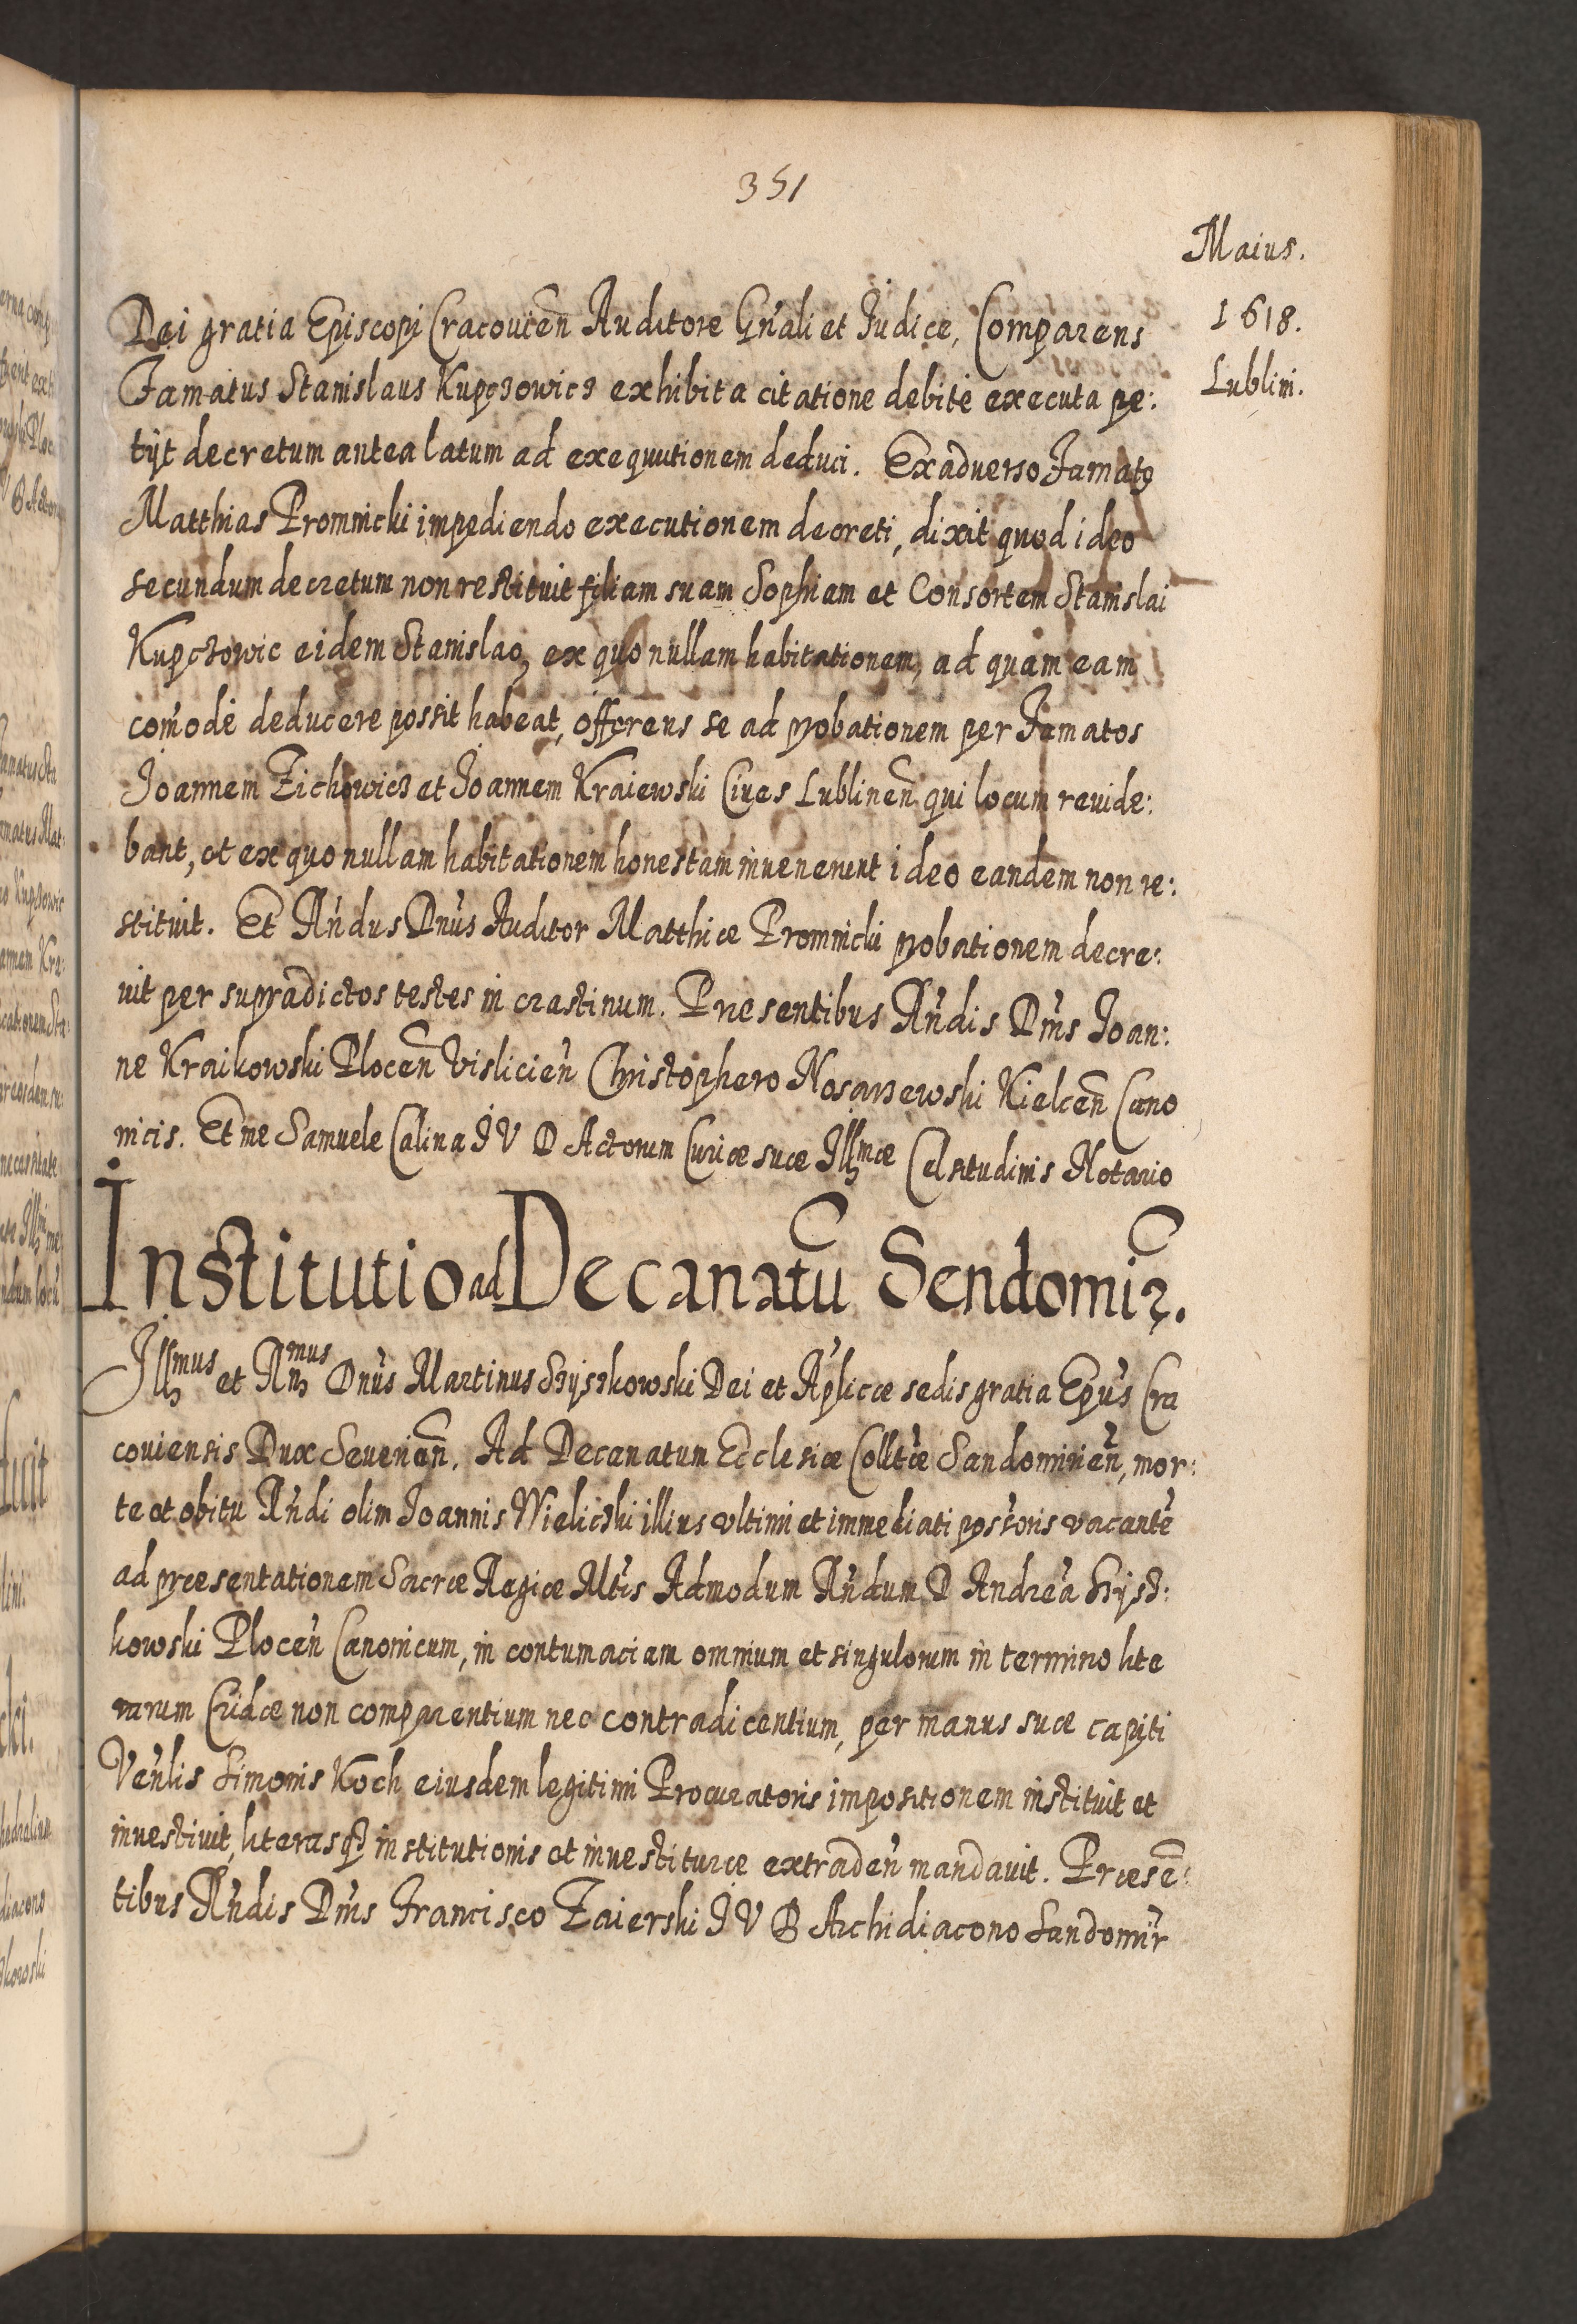 351
Maius.
1618.
Lublini.
Dei gratia Episcopi Cracovień Auditore Gńali et Judice, Comparens
Famatus Stanislaus Kupczowicz exhibita citatione debitè executa pe:
tijt decretum antea latum ad exequutionem deduci. Ex adverso Famatꝯ
Matthias Promnicki impediendo executionem decreti, dixit quod ideo
secundum decretum non restituit filiam suam Sophiam et Consortem Stanislai
Kupczowic eidem Stanislao, ex quo nullam habitationem, ad quam eam
com̃odè deducere possit habeat, offerens se ad probationem per Famatos
Joannem Zichowicz et Joannem Kraiewski Cives Lublineñ qui locum revide:
bant, et ex quo nullam habitationem honestam invenerunt ideo eandem non re:
stituit. Et Rńdus Dnús Auditor Matthiæ Promnicki probationem decre:
vit per supradictos testes in crastinum. Presentibus Rńdis Dńis Joan:
ne Kraikowski Ploceñ Vislicień Christophero Nosarzewski Kielceñ Cano
nicis. Et me Samuele Calina J V D Actorum Curiæ suæ Illmæ Celsitudinis Notario
Institutio ad Decanatũ Sendomir.
Illmus et Rnmus Dnús Martinus Szyszkowski Dei et Aplicæ sedis gratia Epuś Cra
coviensis Dux Severieñ. Ad Decanatum Ecclesiæ Colltæ Sandomirień, mor:
te et obitu Rńdi olim Joannis Wieliczki illius ultimi et immediati possoris vacantẽ
ad præsentationem Sacræ Regiæ Mltis Admodum Rńdum D Andreã Szysz:
kowski Ploceń Canonicum, in contumaciam omnium et singulorum in termino lite
rarum Cridæ non comparentium nec contradicentium, per manus suæ capiti
Veńlis Simonis Koch eiusdem legitimi Procuratoris impositionem instituit et
investivit, literasqꝫ institutionis et investituræ extradeń mandavit. Præsẽ:
tibus Rńdis Dńis Francisco Zaierski J V D Archidiacono Sandomir